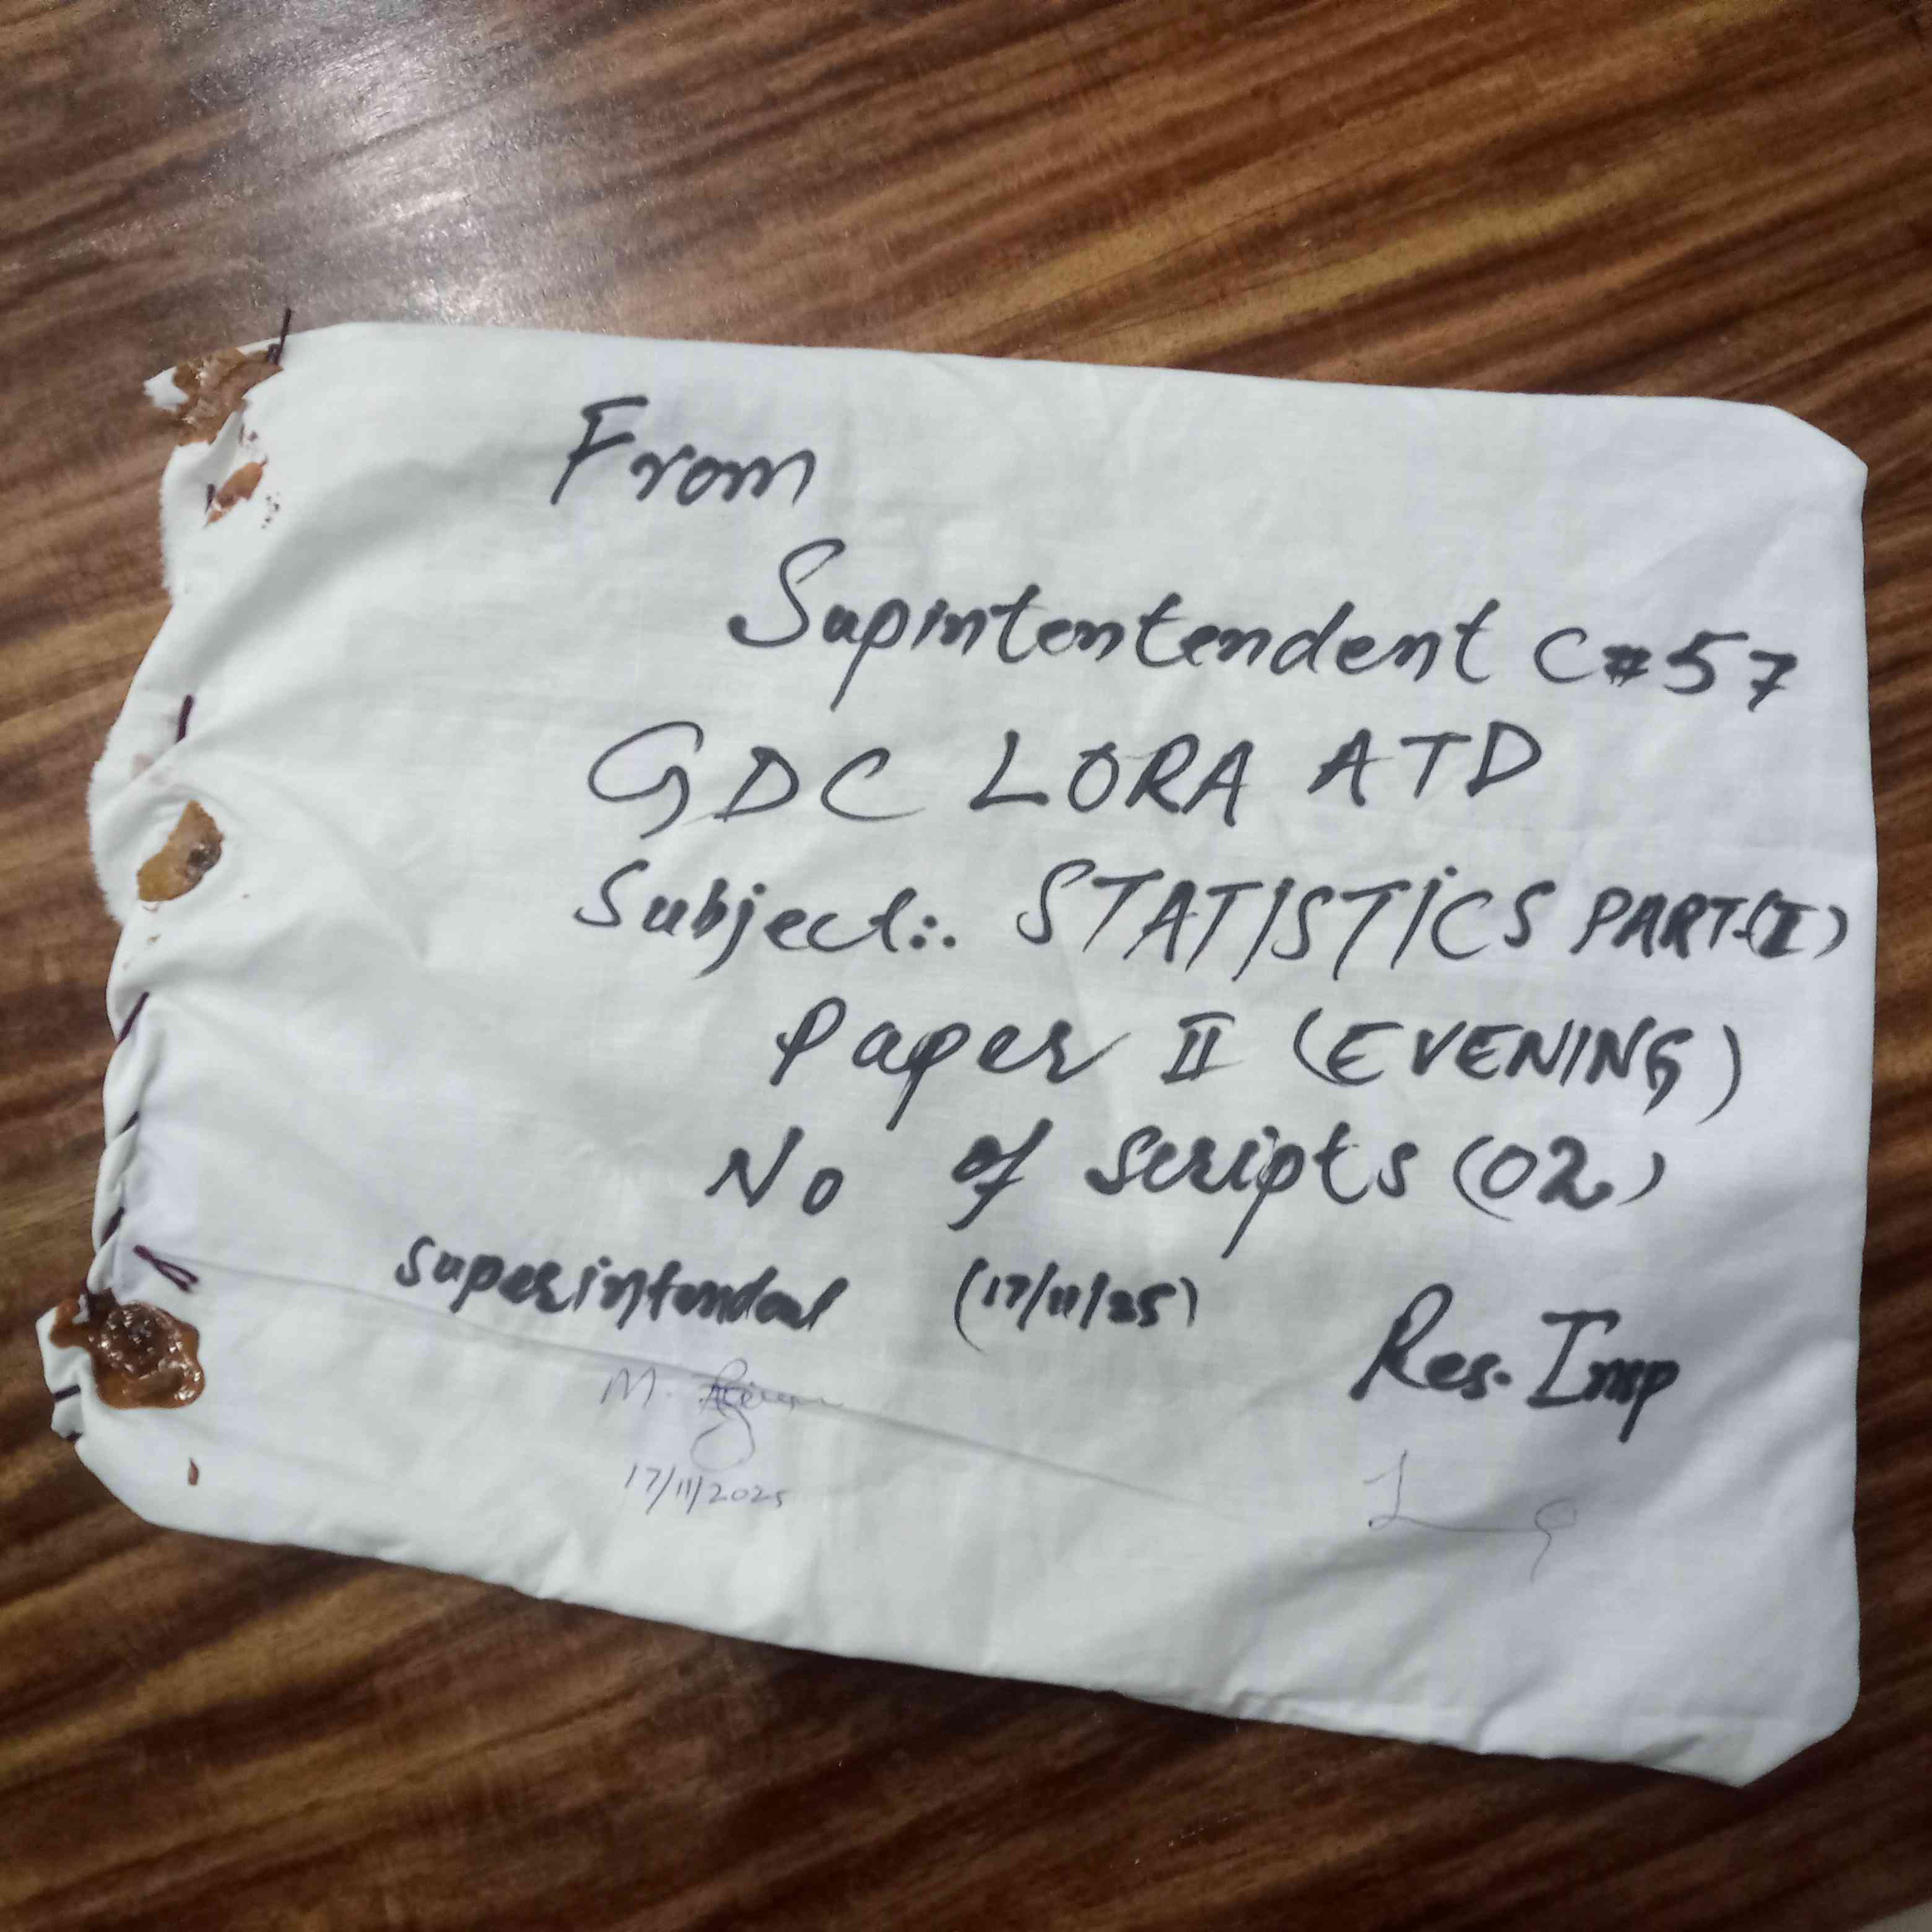 From
Supintentendent C#57
GDC LORA ATD
Subject:. STATISTICS PART-(I)
Paper II (EVENING)
No of scripts (02)
superintendent (17/11/25) Res. Insp
M.
17/11/2025